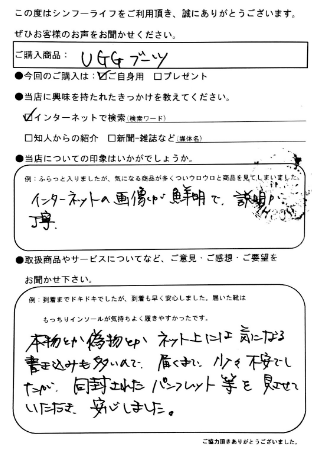 この度はシンフーライフをご利用頂き、誠にありがとうございます。
ぜひお客様のお声をお聞かせください。
ご購入商品： UGG ブーツ
●今回のご購入は：☑ご自身用 □プレゼント
●当店に興味を持たれたきっかけを教えてください。
☑インターネットで検索(検索ワード)
□知人からの紹介 □新聞-雑誌など(媒体名)
●当店についての印象はいかがでしょうか。
例：ふらっと入りましたが、気になる商品が多くついウロウロと商品を見てしまいました。
インターネットの画像が鮮明で、説明が
丁寧。
●取扱商品やサービスについてなど、ご意見・ご感想・ご要望を
お聞かせ下さい。
例：到着までドキドキでしたが、到着も早く安心しました。届いた靴は
もっちりインソールが気持ちよく履きやすかったです。
本物とか偽物とか ネット上には気になる
書き込みも多いので、届くまで、少々不安でし
たが、同封されたパンフレット等を見させて
いただき、安心しました。
ご協力頂きありがとうございました。